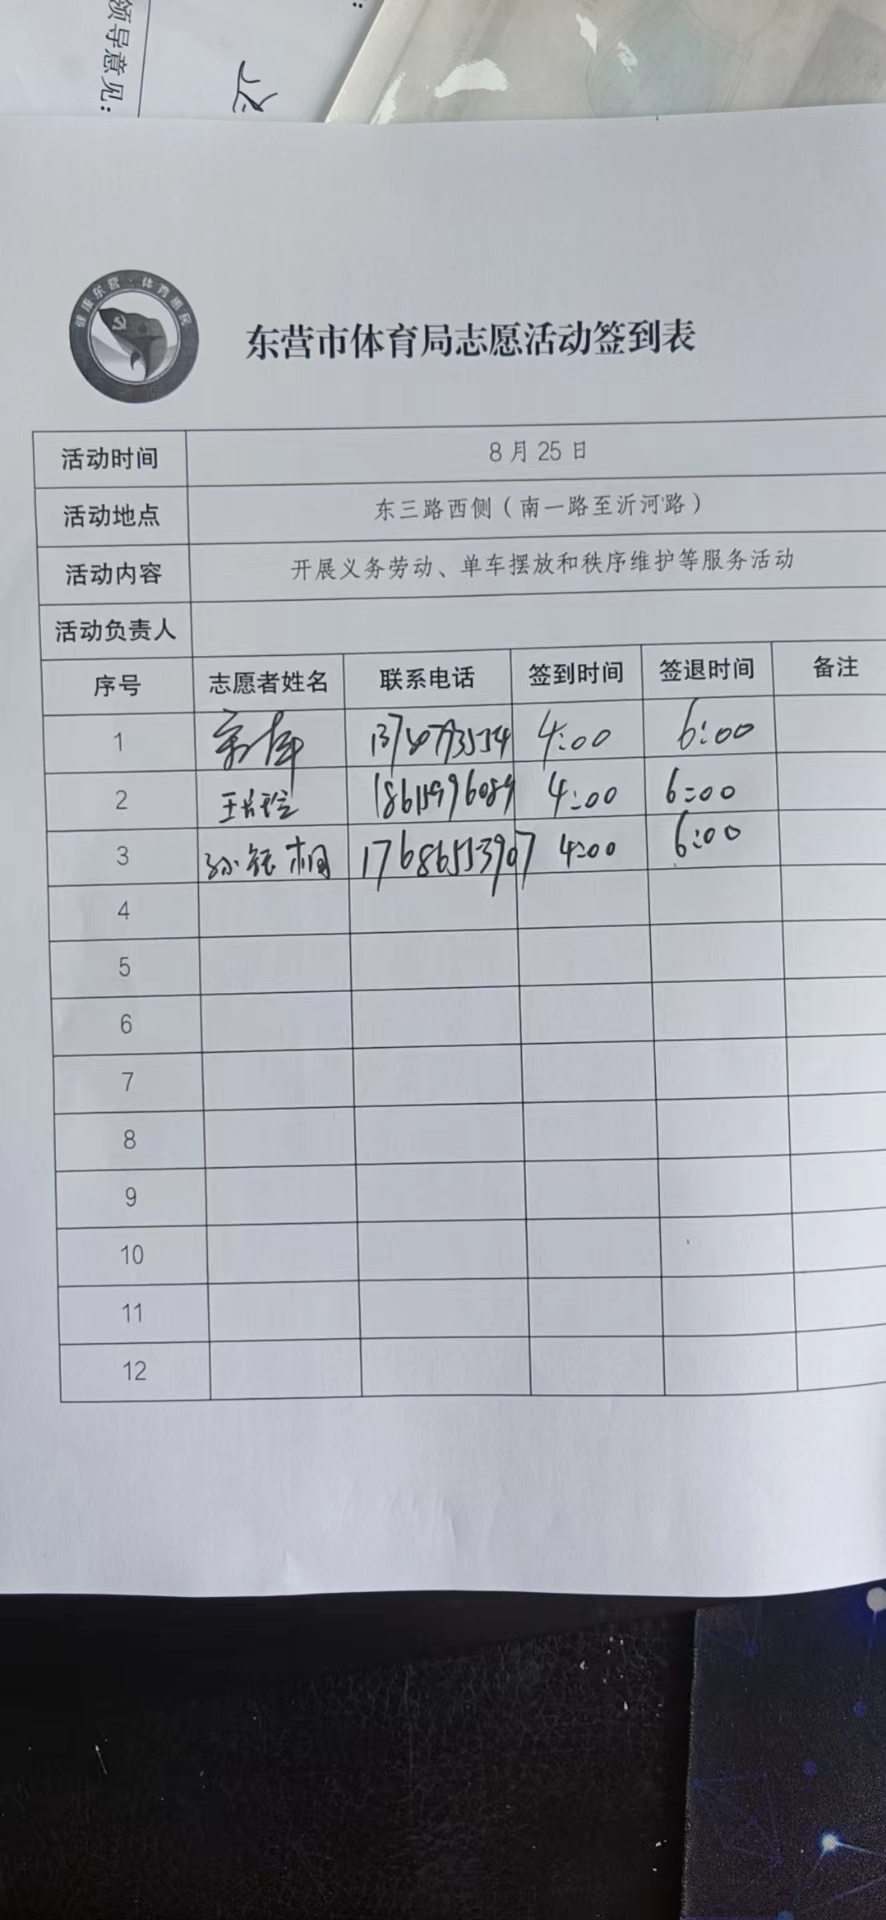 领导意见：
健康东营·体育惠民
东营市体育局志愿活动签到表
活动时间 8月25日
活动地点 东三路西侧（南一路至沂河路）
活动内容 开展义务劳动、单车摆放和秩序维护等服务活动
活动负责人
序号 志愿者姓名 联系电话 签到时间 签退时间 备注
1 4:00 6:00
2 4:00 6:00
3 17686553907 4:00 6:00
4
5
6
7
8
9
10
11
12